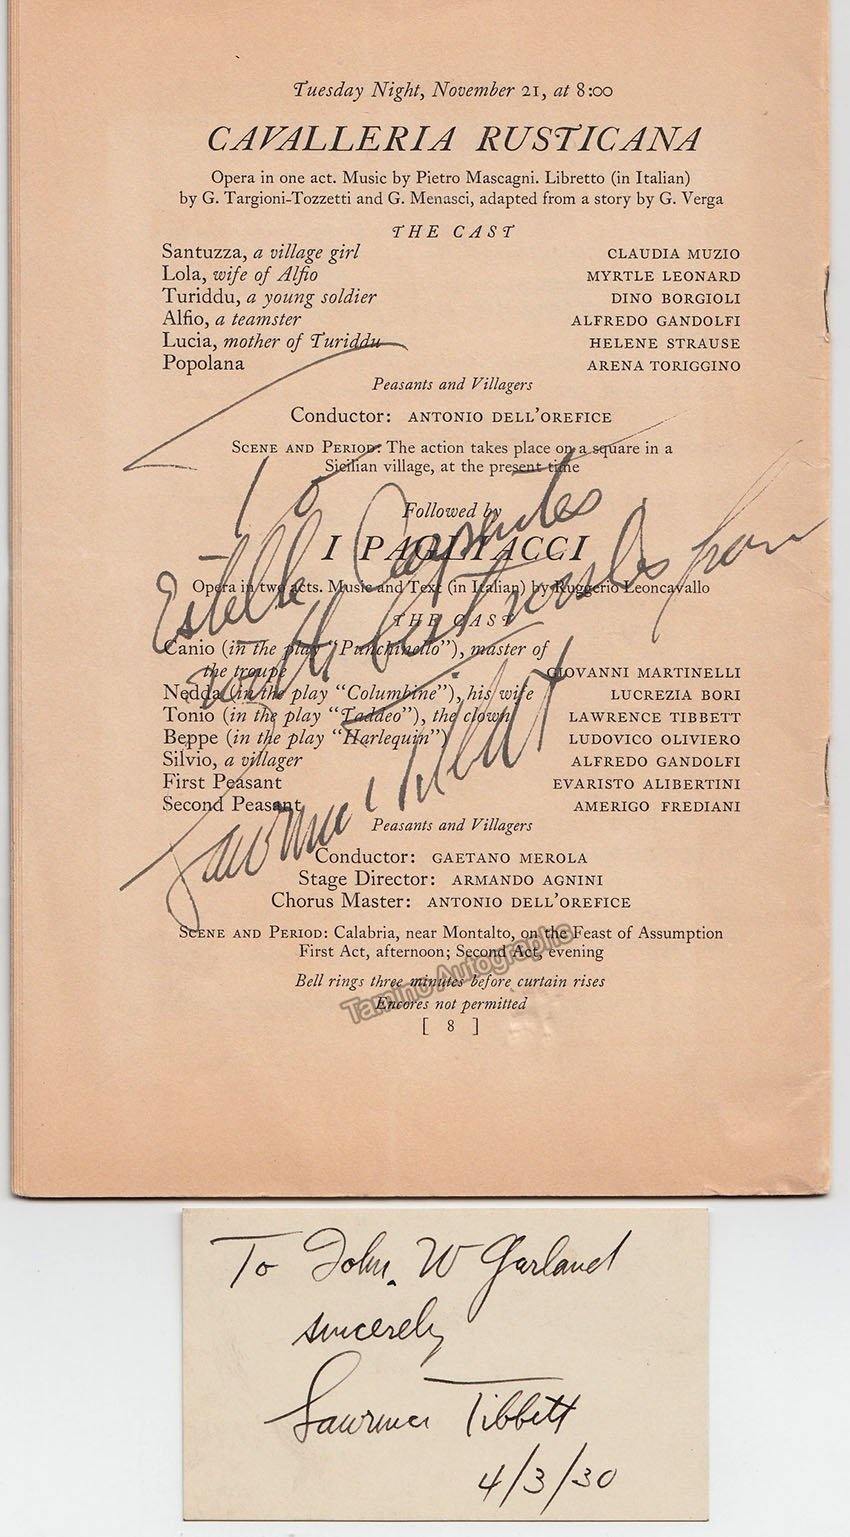 Tuesday Night, November 21, at 8:00
CAVALLERIA RUSTICANA
Opera in one act. Music by Pietro Mascagni. Libretto (in Italian)
by G. Targioni-Tozzetti and G. Menasci, adapted from a story by G. Verga
THE CAST
Santuzza, a village girl CLAUDIA MUZIO
Lola, wife of Alfio MYRTLE LEONARD
Turiddu, a young soldier DINO BORGIOLI
Alfio, a teamster ALFREDO GANDOLFI
Lucia, mother of Turiddu HELENE STRAUSE
Popolana ARENA TORIGGINO
Peasants and Villagers
Conductor: ANTONIO DELL'OREFICE
SCENE AND PERIOD: The action takes place on a square in a
Sicilian village, at the present time
Followed by
I PAGLIACCI
Opera in two acts. Music and Text (in Italian) by Ruggerio Leoncavallo
THE CAST
Canio (in the play "Punchinello"), master of
the troupe GIOVANNI MARTINELLI
Nedda (in the play "Columbine"), his wife LUCREZIA BORI
Tonio (in the play "Taddeo"), the clown LAWRENCE TIBBETT
Beppe (in the play "Harlequin") LUDOVICO OLIVIERO
Silvio, a villager ALFREDO GANDOLFI
First Peasant EVARISTO ALIBERTINI
Second Peasant AMERIGO FREDIANI
Peasants and Villagers
Conductor: GAETANO MEROLA
Stage Director: ARMANDO AGNINI
Chorus Master: ANTONIO DELL'OREFICE
SCENE AND PERIOD: Calabria, near Montalto, on the Feast of Assumption
First Act, afternoon; Second Act, evening
Bell rings three minutes before curtain rises
Encores not permitted
[ 8 ]
To
Estelle Carpenter
with best wishes from
Lawrence Tibbett
Tamino Autographs
To John W Garland
sincerely
Lawrence Tibbett
4/3/30